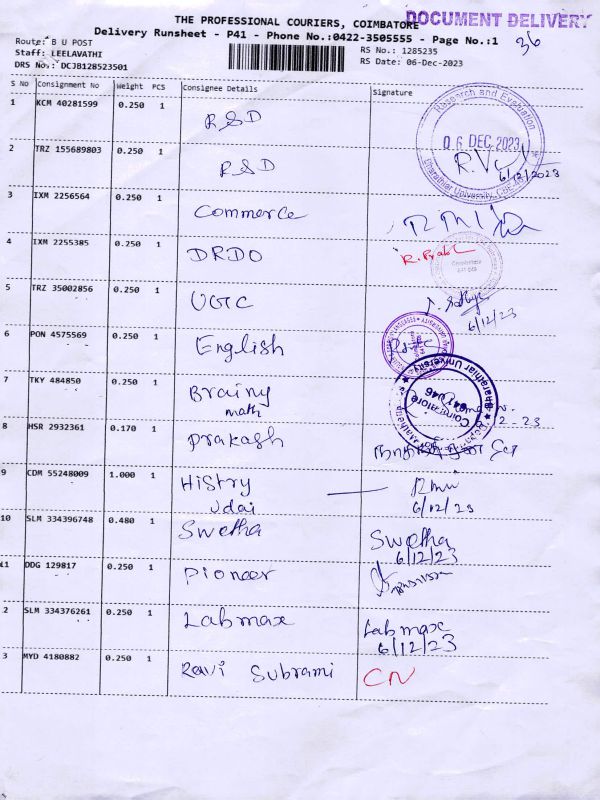 THE PROFESSIONAL COURIERS, COIMBATORE
DOCUMENT DELIVERY
Delivery Runsheet - P41 - Phone No.:0422-3505555 - Page No.:1
36
Route: B U POST
Staff: LEELAVATHI
DRS No.: DCJB128523501
RS No.: 1285235
RS Date: 06-Dec-2023
S No Consignment No Weight PCS Consignee Details Signature
1 KCM 40281599 0.250 1 RSD
Research and Evaluation
06 DEC 2023
Bharathiar University, CBE
6/12/2023
2 TRZ 155689803 0.250 1 RSD
3 IXM 2256564 0.250 1 Commerce
4 IXM 2255385 0.250 1 DRDO R. Prabh
5 TRZ 35002856 0.250 1 UGC
6/12/23
6 PON 4575569 0.250 1 English
7 TKY 484850 0.250 1 Brainy
math
Bharathiar University
Coimbatore
641 046
8 HSR 2932361 0.170 1 prakash
9 CDM 55248009 1.000 1 HiStry
Udai 6/12/23
10 SLM 334396748 0.480 1 Swetha Swetha
6/12/23
11 DDG 129817 0.250 1 Pioneer
2 SLM 334376261 0.250 1 Labmax Labmax
6/12/23
3 MYD 4180882 0.250 1 Ravi Subrami CN